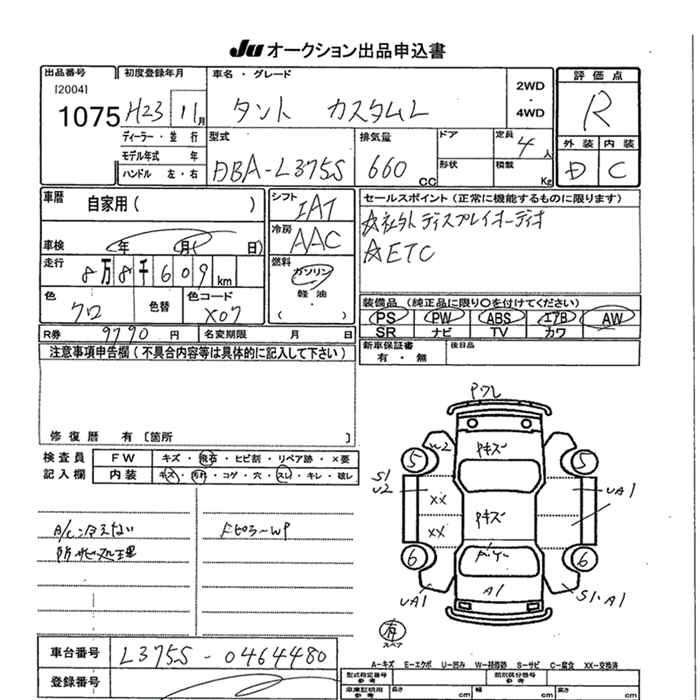 Ju オークション出品申込書
出品番号
[2004]
1075
初度登録年月
H23 11月
車名・グレード
タント カスタムL
2WD
・
4WD
評価点
R
外装 内装
D C
ディーラー・並行
モデル年式 年
ハンドル 左・右
型式
DBA-L375S
排気量
660 CC
ドア
形状
定員
4人
積載
Kg
車歴
自家用( )
車検 年 月 日
走行
8万8千609 km
色
クロ
色替
色コード
X07
シフト
IAT
冷房
AAC
燃料
ガソリン
軽油
( )
セールスポイント(正常に機能するものに限ります)
☆社外ディスプレイオーディオ
☆ETC
装備品(純正品に限り○を付けてください)
PS PW ABS エアB AW
SR ナビ TV カワ
新車保証書
有・無
後日品
R券 9790 円
名変期限 月 日
注意事項申告欄(不具合内容等は具体的に記入して下さい)
修復歴 有[箇所 ]
検査員
記入欄
FW キズ・飛石・ヒビ割・リペア跡・×要
内装 キズ・汚れ・コゲ・穴・スレ・キレ・破レ
A/C冷えない
防サビ処理
FピラーWP
Pクレ
W2
Pキズ
5
5
S1
U2
XX
XX
Pキズ
UA1
6
6
UA1
A1
S1.A1
有
スペア
車台番号
L375S-0464480
登録番号
A-キズ E-エクボ U-凹み W-補修跡 S-サビ C-腐食 XX-交換済
型式指定番号
参考
類別区分番号
参考
車庫証明用
参考
長さ cm
幅 cm
高さ cm